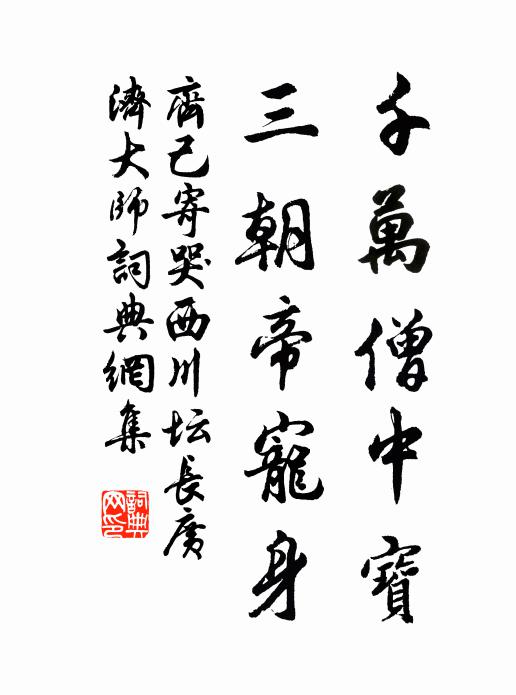 千萬僧中寶
三朝帝寵身
齊己寄哭西川坛長廣
濟大師詞典網集
詞典网印